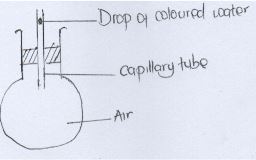 Drop of coloured water
capillary tube
Air